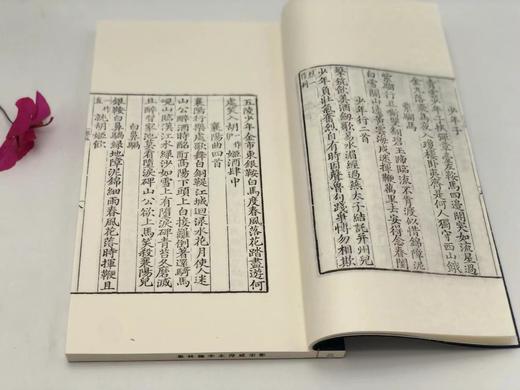 少年子
青雲年少子挾彈章臺左鞍馬四邊開突如流星過
金丸落飛鳥夜入瓊樓臥夷齊是何人獨守西山餓
紫騮馬
紫騮行且嘶雙翻碧玉蹄臨流不肯渡似惜錦障泥
白雪關山遠黃雲海戍迷揮鞭萬里去安得念春閨
少年行二首
擊筑飲美酒劍歌易水湄經過燕太子結託并州兒
少年負壯氣奮烈自有時因聲魯句踐爭情勿相欺
五陵少年金市東銀鞍白馬度春風落花踏盡遊何
處笑入胡姬酒肆中
襄陽曲四首
襄陽行樂處歌舞白銅鞮江城回淥水花月使人迷
山公醉酒時酩酊高陽下頭上白接䍦倒著還騎馬
峴山臨漢江水淥沙如雪上有墮淚碑青苔久磨滅
且醉習家池莫看墮淚碑山公欲上馬笑殺襄陽兒
白鼻騧
銀鞍白鼻騧綠地障泥錦細雨春風花落時揮鞭且
直就胡姬飲